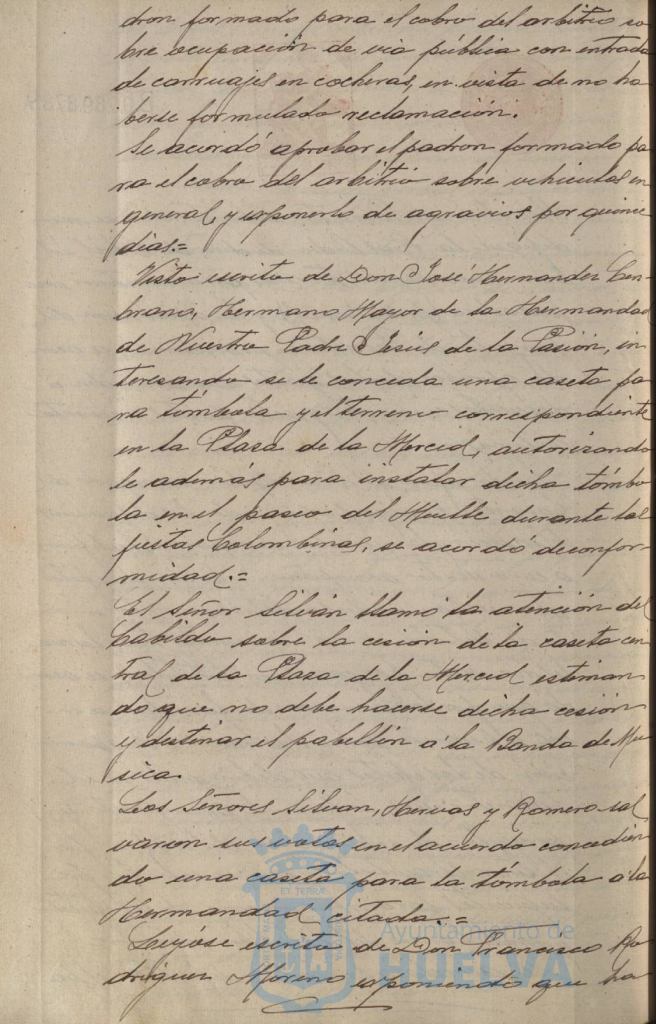 dron formado para el cobro del arbitrio so
bre ocupación de via pública con entrada
de carruajes en cocheras, en vista de no ha
berse formulado reclamación.
Se acordó aprobar el padron formado pa
ra el cobro del arbitrio sobre vehiculos en
general, y exponerlo de agravios por quince
dias.=
Visto escrito de Don José Hernandez Cen
brano, Hermano Mayor de la Hermandad
de Nuestro Padre Jesús de la Pasión, in
teresando se le conceda una caseta pa
ra tómbola y el terreno correspondiente
en la Plaza de la Merced, autorizando
le además para instalar dicha tómbo
la en el paseo del Muelle durante las
fiestas Colombinas, se acordó de confor-
midad.=
El Señor Silván llamó la atención del
Cabildo sobre la cesión de la caseta cen
tral de la Plaza de la Merced estiman
do que no debe hacerse dicha cesión
y destinar el pabellón a la Banda de Mú
sica.
Los Señores Silvan, Hervas y Romero sal
varon sus votos en el acuerdo concedien
do una caseta para la tómbola a la
Hermandad citada.=
Leyóse escrito de Don Francisco Ro
driguez Moreno exponiendo que ha
Ayuntamiento de
HUELVA